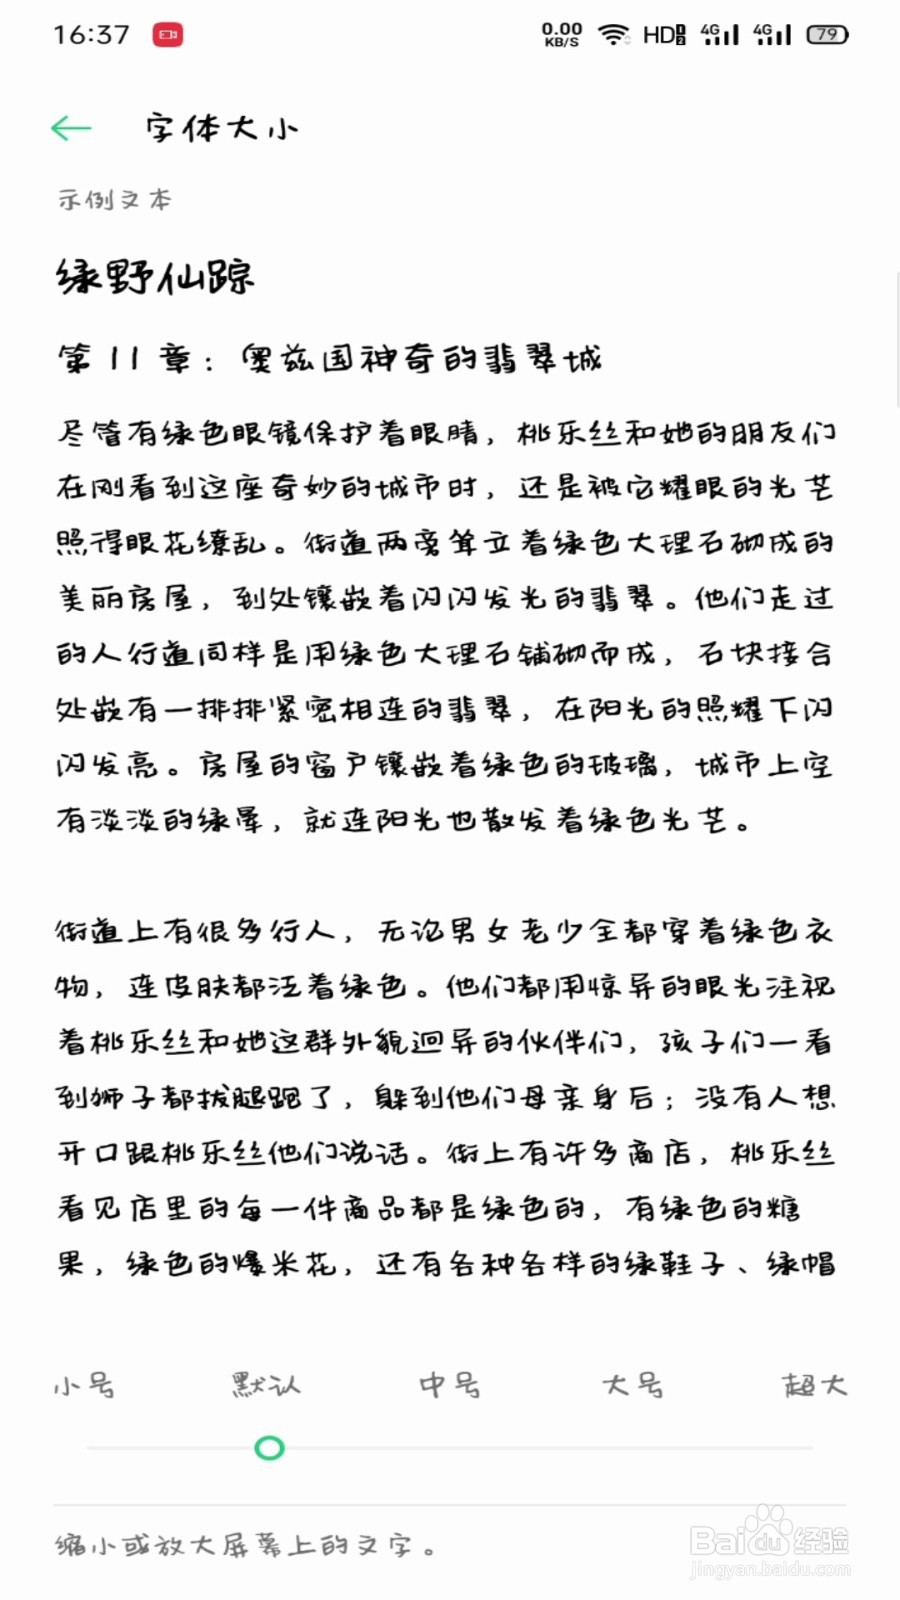 16:37
0.00 KB/S HD 1 2 4G 4G 79
字体大小
示例文本
绿野仙踪
第 11 章：奥兹国神奇的翡翠城
尽管有绿色眼镜保护着眼睛，桃乐丝和她的朋友们
在刚看到这座奇妙的城市时，还是被它耀眼的光芒
照得眼花缭乱。街道两旁耸立着绿色大理石砌成的
美丽房屋，到处镶嵌着闪闪发光的翡翠。他们走过
的人行道同样是用绿色大理石铺砌而成，石块接合
处嵌有一排排紧密相连的翡翠，在阳光的照耀下闪
闪发亮。房屋的窗户镶嵌着绿色的玻璃，城市上空
有淡淡的绿晕，就连阳光也散发着绿色光芒。
街道上有很多行人，无论男女老少全都穿着绿色衣
物，连皮肤都泛着绿色。他们都用惊异的眼光注视
着桃乐丝和她这群外貌迥异的伙伴们，孩子们一看
到狮子都拔腿跑了，躲到他们母亲身后；没有人想
开口跟桃乐丝他们说话。街上有许多商店，桃乐丝
看见店里的每一件商品都是绿色的，有绿色的糖
果，绿色的爆米花，还有各种各样的绿鞋子、绿帽
小号 默认 中号 大号 超大
缩小或放大屏幕上的文字。
Baidu 经验
jingyan.baidu.com